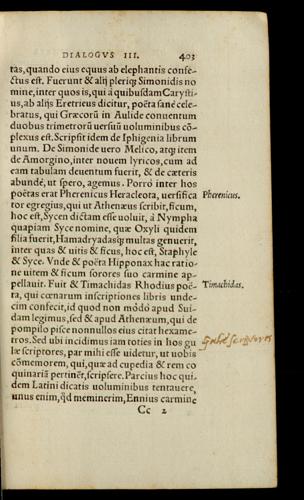 DIALOGVS III. 403
tas, quando eius equus ab elephantis confe-
ctus est. Fuerunt & alij pleriq; Simonidis no
mine, inter quos is, qui à quibusdam Carysti-
us, ab alijs Eretricus dicitur, poëta sanè cele-
bratus, qui Græcorũ in Aulide conuentum
duobus trimetrorũ uersuũ uoluminibus cõ-
plexus est. Scripsit idem de Iphigenia librum
unum. De Simonide uero Melico, atq; item
de Amorgino, inter nouem lyricos, cum ad
eam tabulam deuentum fuerit, & de cæteris
abundè, ut spero, agemus. Porrò inter hos
poëtas erat Pherenicus Heracleota, uersifica
Pherenicus.
tor egregius, qui ut Athenæus scribit, ficum,
hoc est, Sycen dictam esse uoluit, à Nympha
quapiam Syce nomine, quæ Oxyli quidem
filia fuerit, Hamadryadasq; multas genuerit,
inter quas & uitis & ficus, hoc est, Staphyle
& Syce. Vnde & poëta Hipponax hac ratio-
ne uitem & ficum sorores suo carmine ap-
pellauit. Fuit & Timachidas Rhodius poë-
Timachidas.
ta, qui cœnarum inscriptiones libris unde-
cim confecit, id quod non mõdò apud Sui-
dam legimus, sed & apud Athenæum, qui de
pompilo pisce nonnullos eius citat hexame-
tros. Sed ubi incidimus iam toties in hos gu
læ scriptores, par mihi esse uidetur, ut uobis
cõmemorem, qui, quæ ad cupedia & rem co
quinariã pertinẽt, scripsere. Parcius hoc qui-
dem Latini dicatis uoluminibus tentauere,
unus enim, qđ meminerim, Ennius carmine
Cc 2